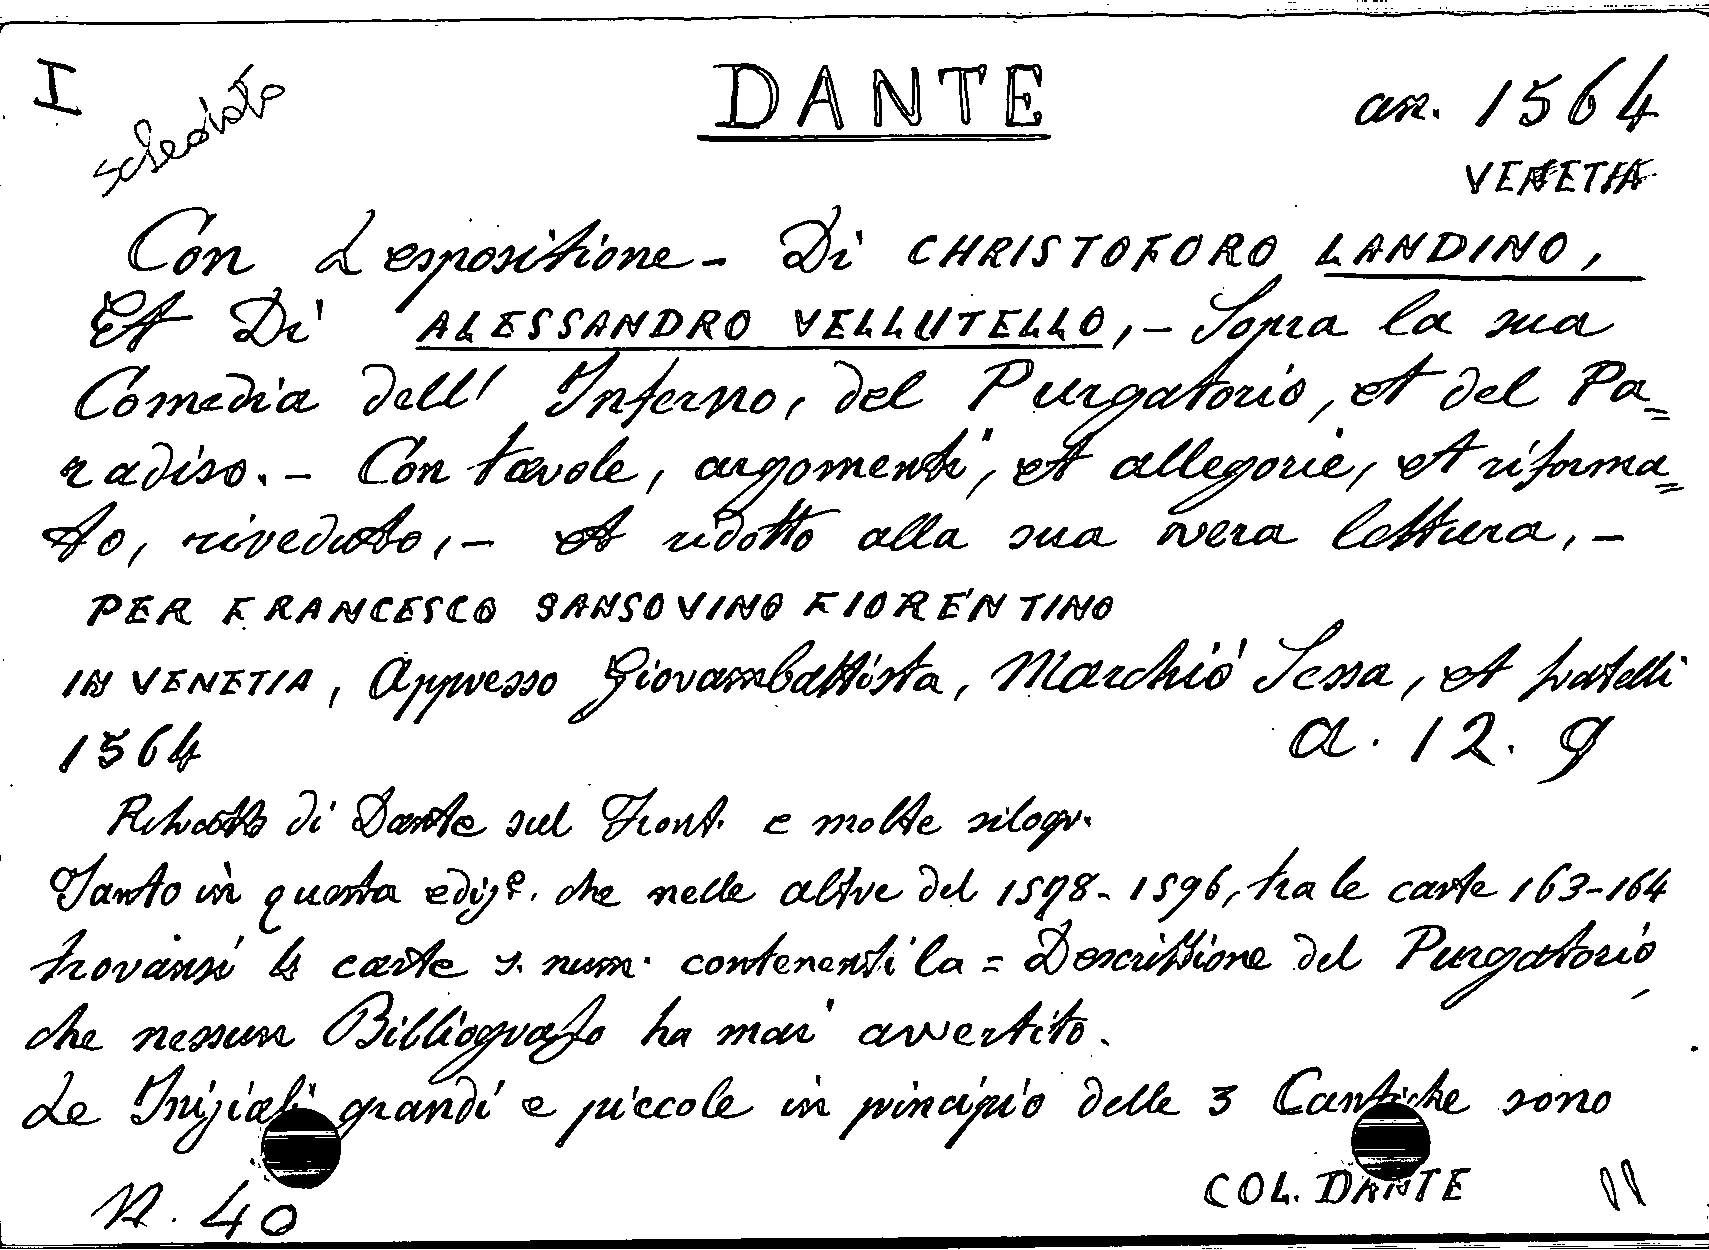 I
schedato
DANTE
an. 1564
VENETIA
Con L'espositione - Di CHRISTOFORO LANDINO,
Et Di ALESSANDRO VELLUTELLO, - Sopra la sua
Comedia dell' Inferno, del Purgatorio, et del Pa=
radiso. - Con tavole, argomenti, et allegorie, et riforma=
to, riveduto, - et ridotto alla sua vera lettura, -
PER FRANCESCO SANSOVINO FIORENTINO
IN VENETIA, Appresso Giovambattista, Marchiò Sessa, et fratelli
1564
a. 12. 9
Ritratto di Dante sul Front. e molte silogr.
Tanto in questa ediz.e che nelle altre del 1578-1596, tra le carte 163-164
trovansi 4 carte s. num. contenenti la = Descrittione del Purgatorio
che nessun Bibliografo ha mai avvertito.
Le Iniziali grandi e piccole in principio delle 3 Cantiche sono
N. 40
COL. DANTE